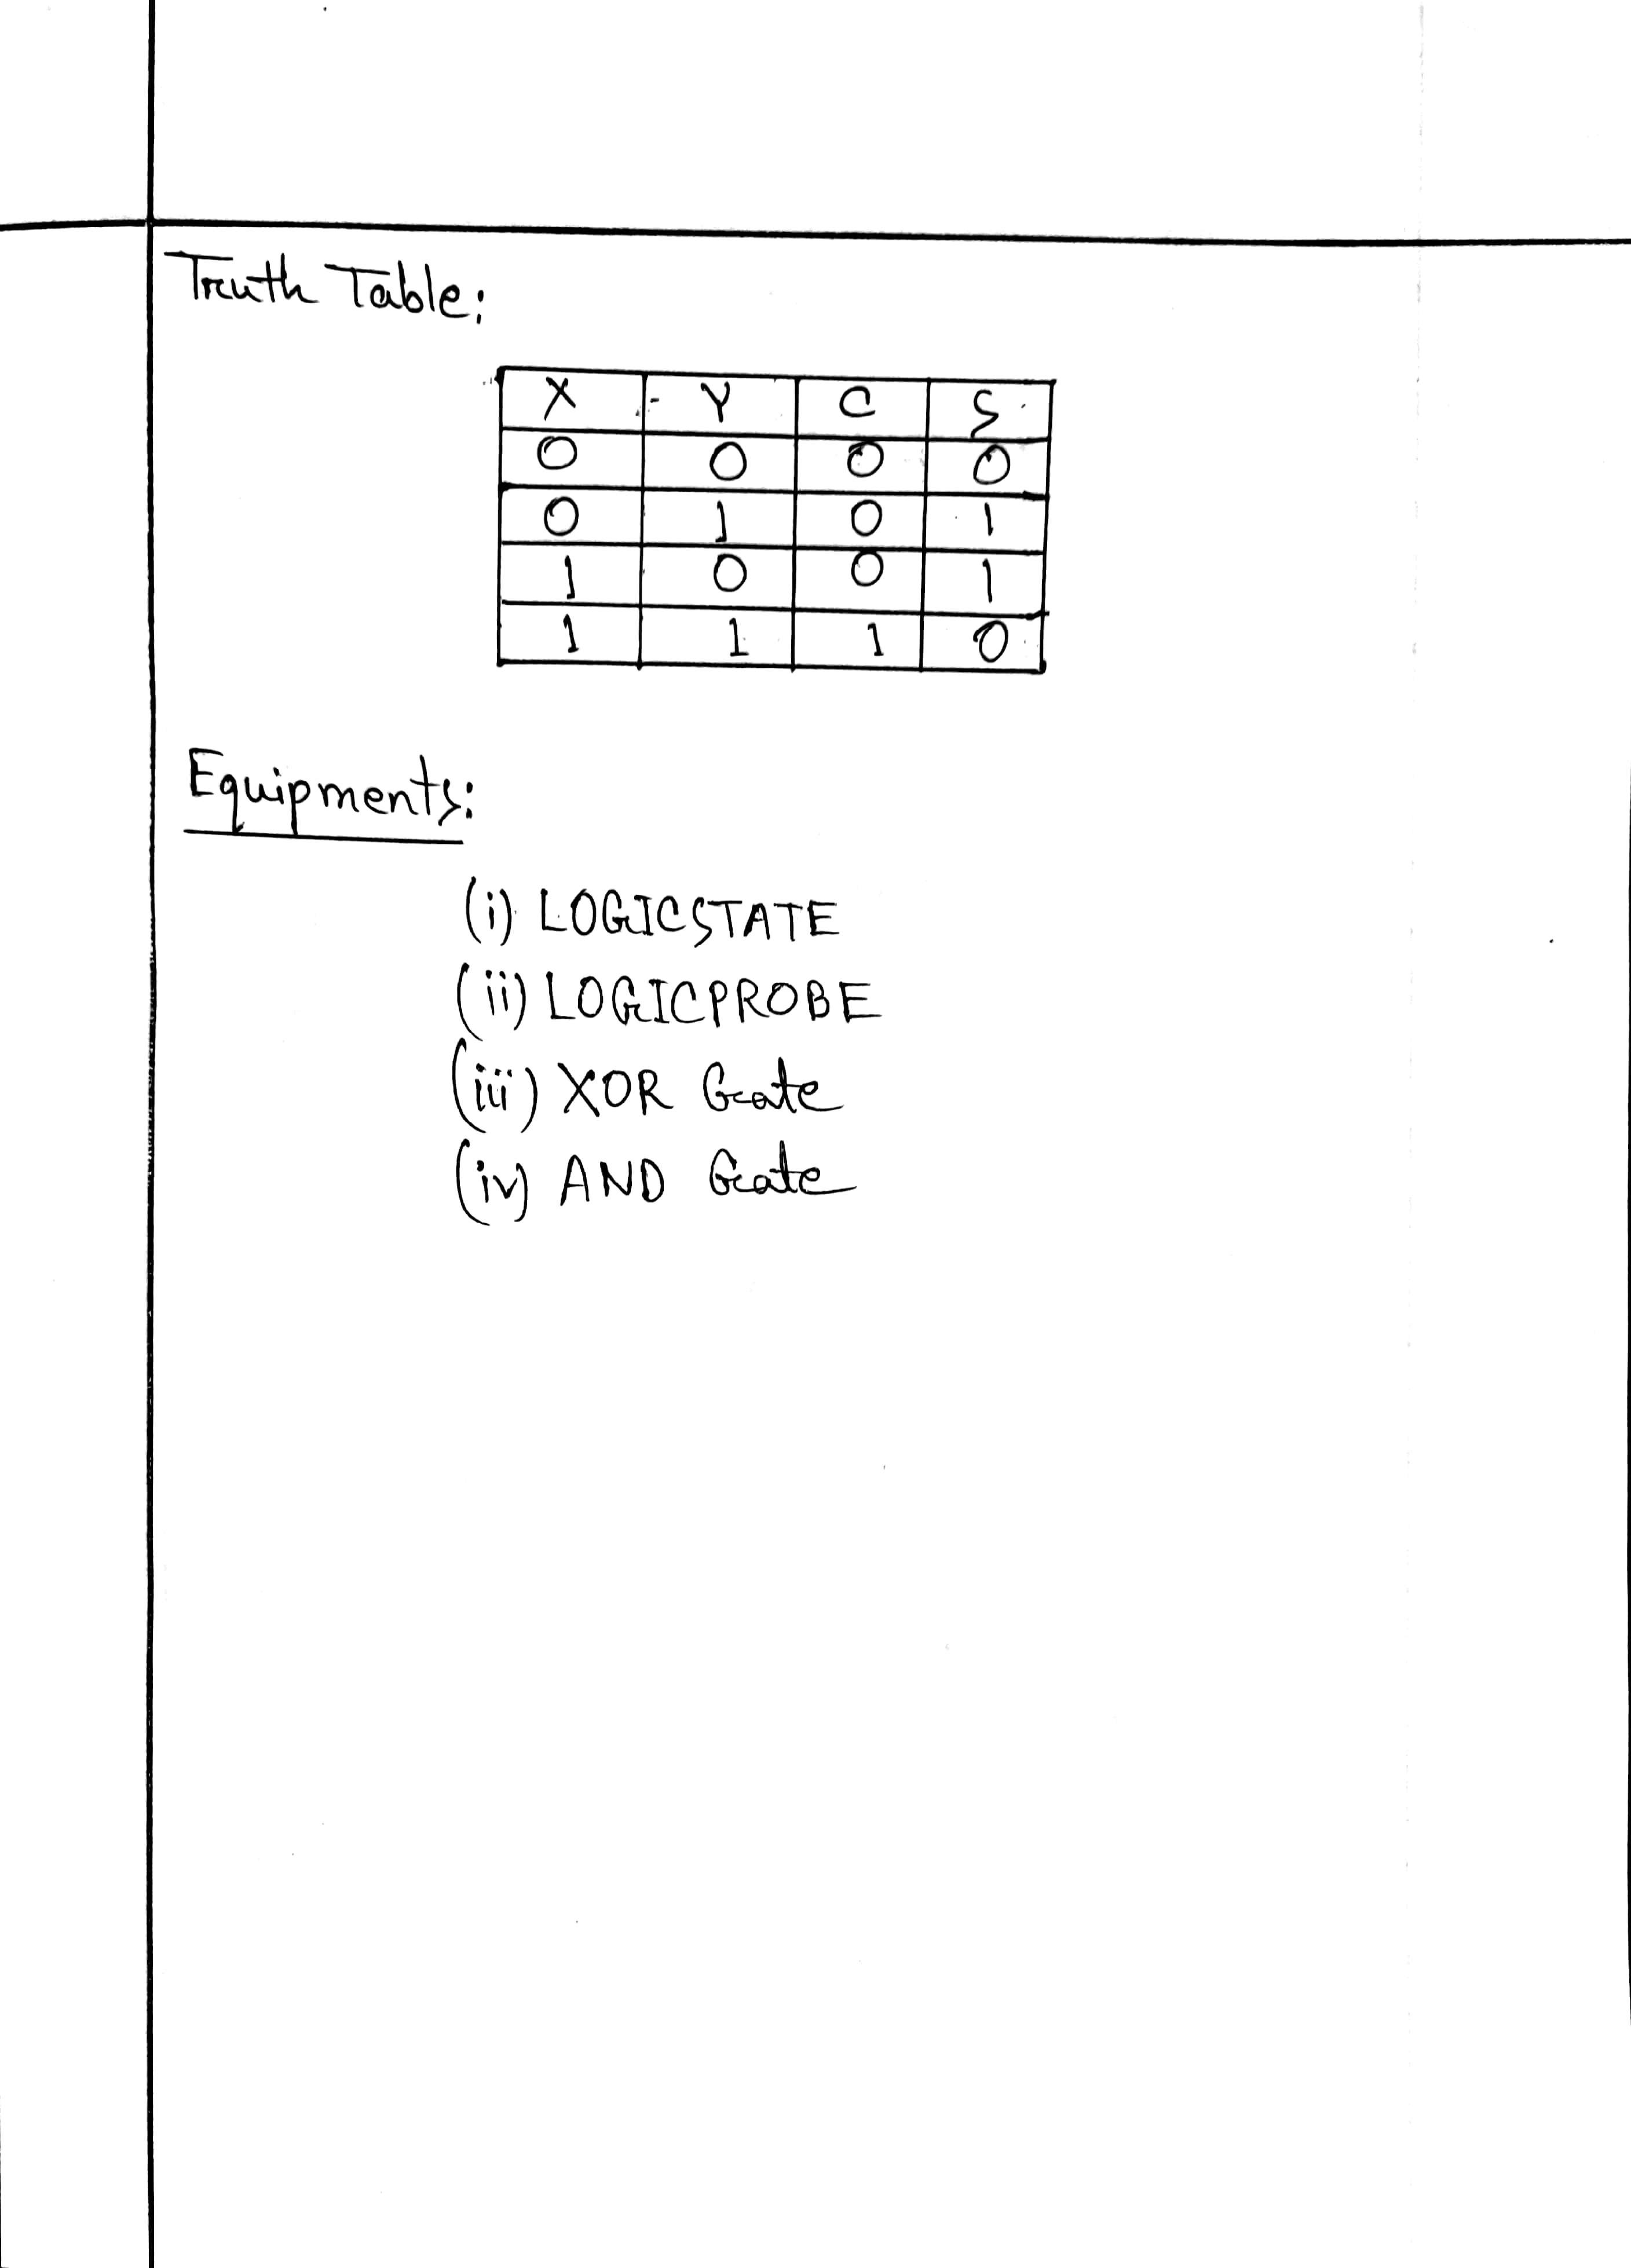 Truth Table:
X Y C S
0 0 0 0
0 1 0 1
1 0 0 1
1 1 1 0
Equipments:
(i) LOGICSTATE
(ii) LOGICPROBE
(iii) XOR Gate
(iv) AND Gate